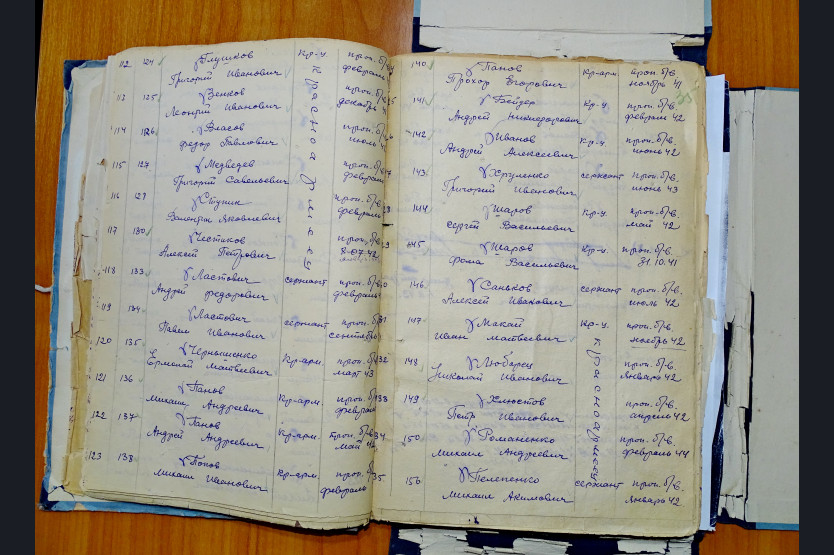 112 124 Глушков Кр-ц. проп. б/в
Григорий Иванович февраль
113 125 Венков проп. б/в
Леонтий Иванович декабрь
114 126 Власов проп. б/в
Федор Павлович июль
115 127 Медведев проп. б/в
Григорий Савельевич февраль
116 129 проп. б/в
Валентин Яковлевич февраль
117 130 Чистиков проп. б/в
Алексей Петрович 8-07-42
красноармеец
118 133 Ластович сержант проп. б/в
Андрей Федорович февраль
119 134 Ластович сержант проп. б/в
Павел Иванович сентябрь
120 135 Чернышенко Кр-арм. проп. б/в
Ермолай Матвеевич март 43
121 136 Панов Кр-арм. проп. б/в
Михаил Андреевич февраль
122 137 Панов Кр-арм. проп. б/в
Андрей Андреевич май 42
123 138 Попов Кр-арм. проп. б/в
Михаил Иванович февраль
140 Панов Кр-арм проп. б/в.
Прохор Егорович ноябрь 41
141 Бейзер Кр-ц проп. б/в.
Андрей Никифорович февраль 42
142 Иванов Кр-ц. проп. б/в.
Андрей Алексеевич июнь 42
143 Хруленко сержант проп. б/в.
Григорий Иванович июнь 43
144 Шаров Кр-ц. проп. б/в.
Сергей Васильевич май 42
145 Шаров Кр-ц. проп. б/в.
Фома Васильевич 31.10.41
146 Саньков сержант проп. б/в.
Алексей Иванович июль 42
147 Макай Кр-ц. проп. б/в.
Иван Матвеевич ноябрь 42
148 Люборец проп. б/в.
Николай Иванович январь 42
149 Хлюстов проп. б/в.
Петр Иванович апрель 42
150 Романенко проп. б/в.
Михаил Андреевич февраль 44
красноармеец
156 Пелепенко сержант проп. б/в.
Михаил Акимович январь 42